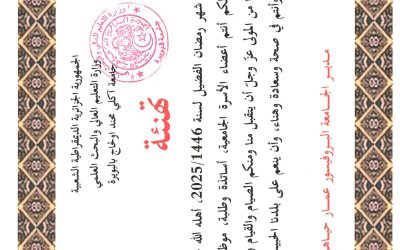 الجمهورية الجزائرية الديمقراطية الشعبية
وزارة التعليم العالي والبحث العلمي
جامعة آكلي محند اولحاج بالبويرة
تهنئة
شهر رمضان الفضيل لسنة 2025/1446، أهله الله
كم أنتم أعضاء الأسرة الجامعية، أساتذة وطلبة،
من المولى عز وجل أن يتقبل منا ومنكم الصيام والقيام
وأنتم في صحة وسعادة وهناء، وأن ينعم على بلدنا
مدير الجامعة البروفيسور عمار